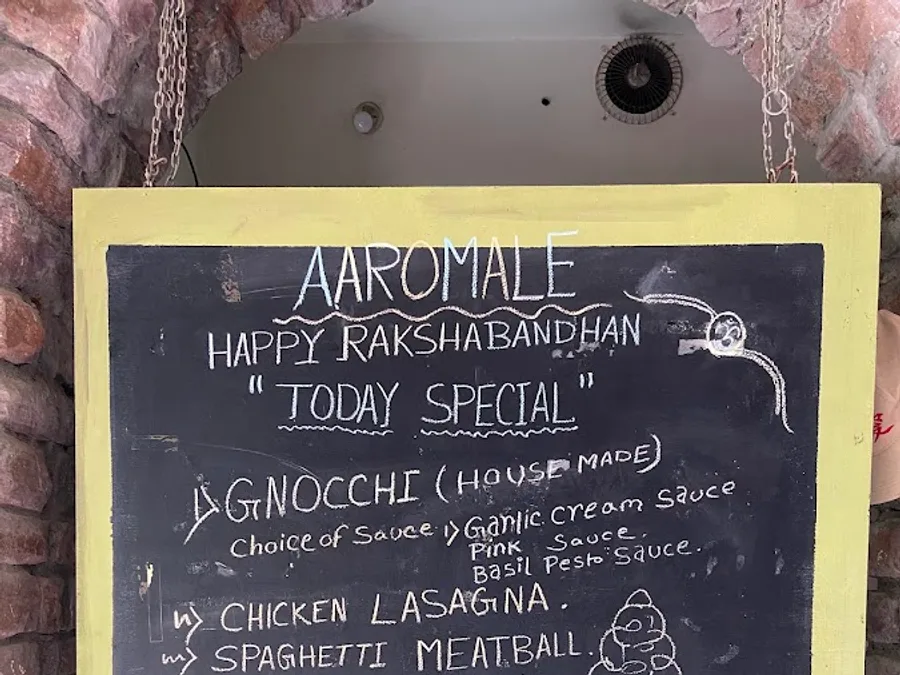 AAROMALE
HAPPY RAKSHABANDHAN
"TODAY SPECIAL"
GNOCCHI (HOUSE MADE)
Choice of Sauce Garlic cream sauce
Pink Sauce.
Basil Pesto Sauce.
CHICKEN LASAGNA.
SPAGHETTI MEATBALL.